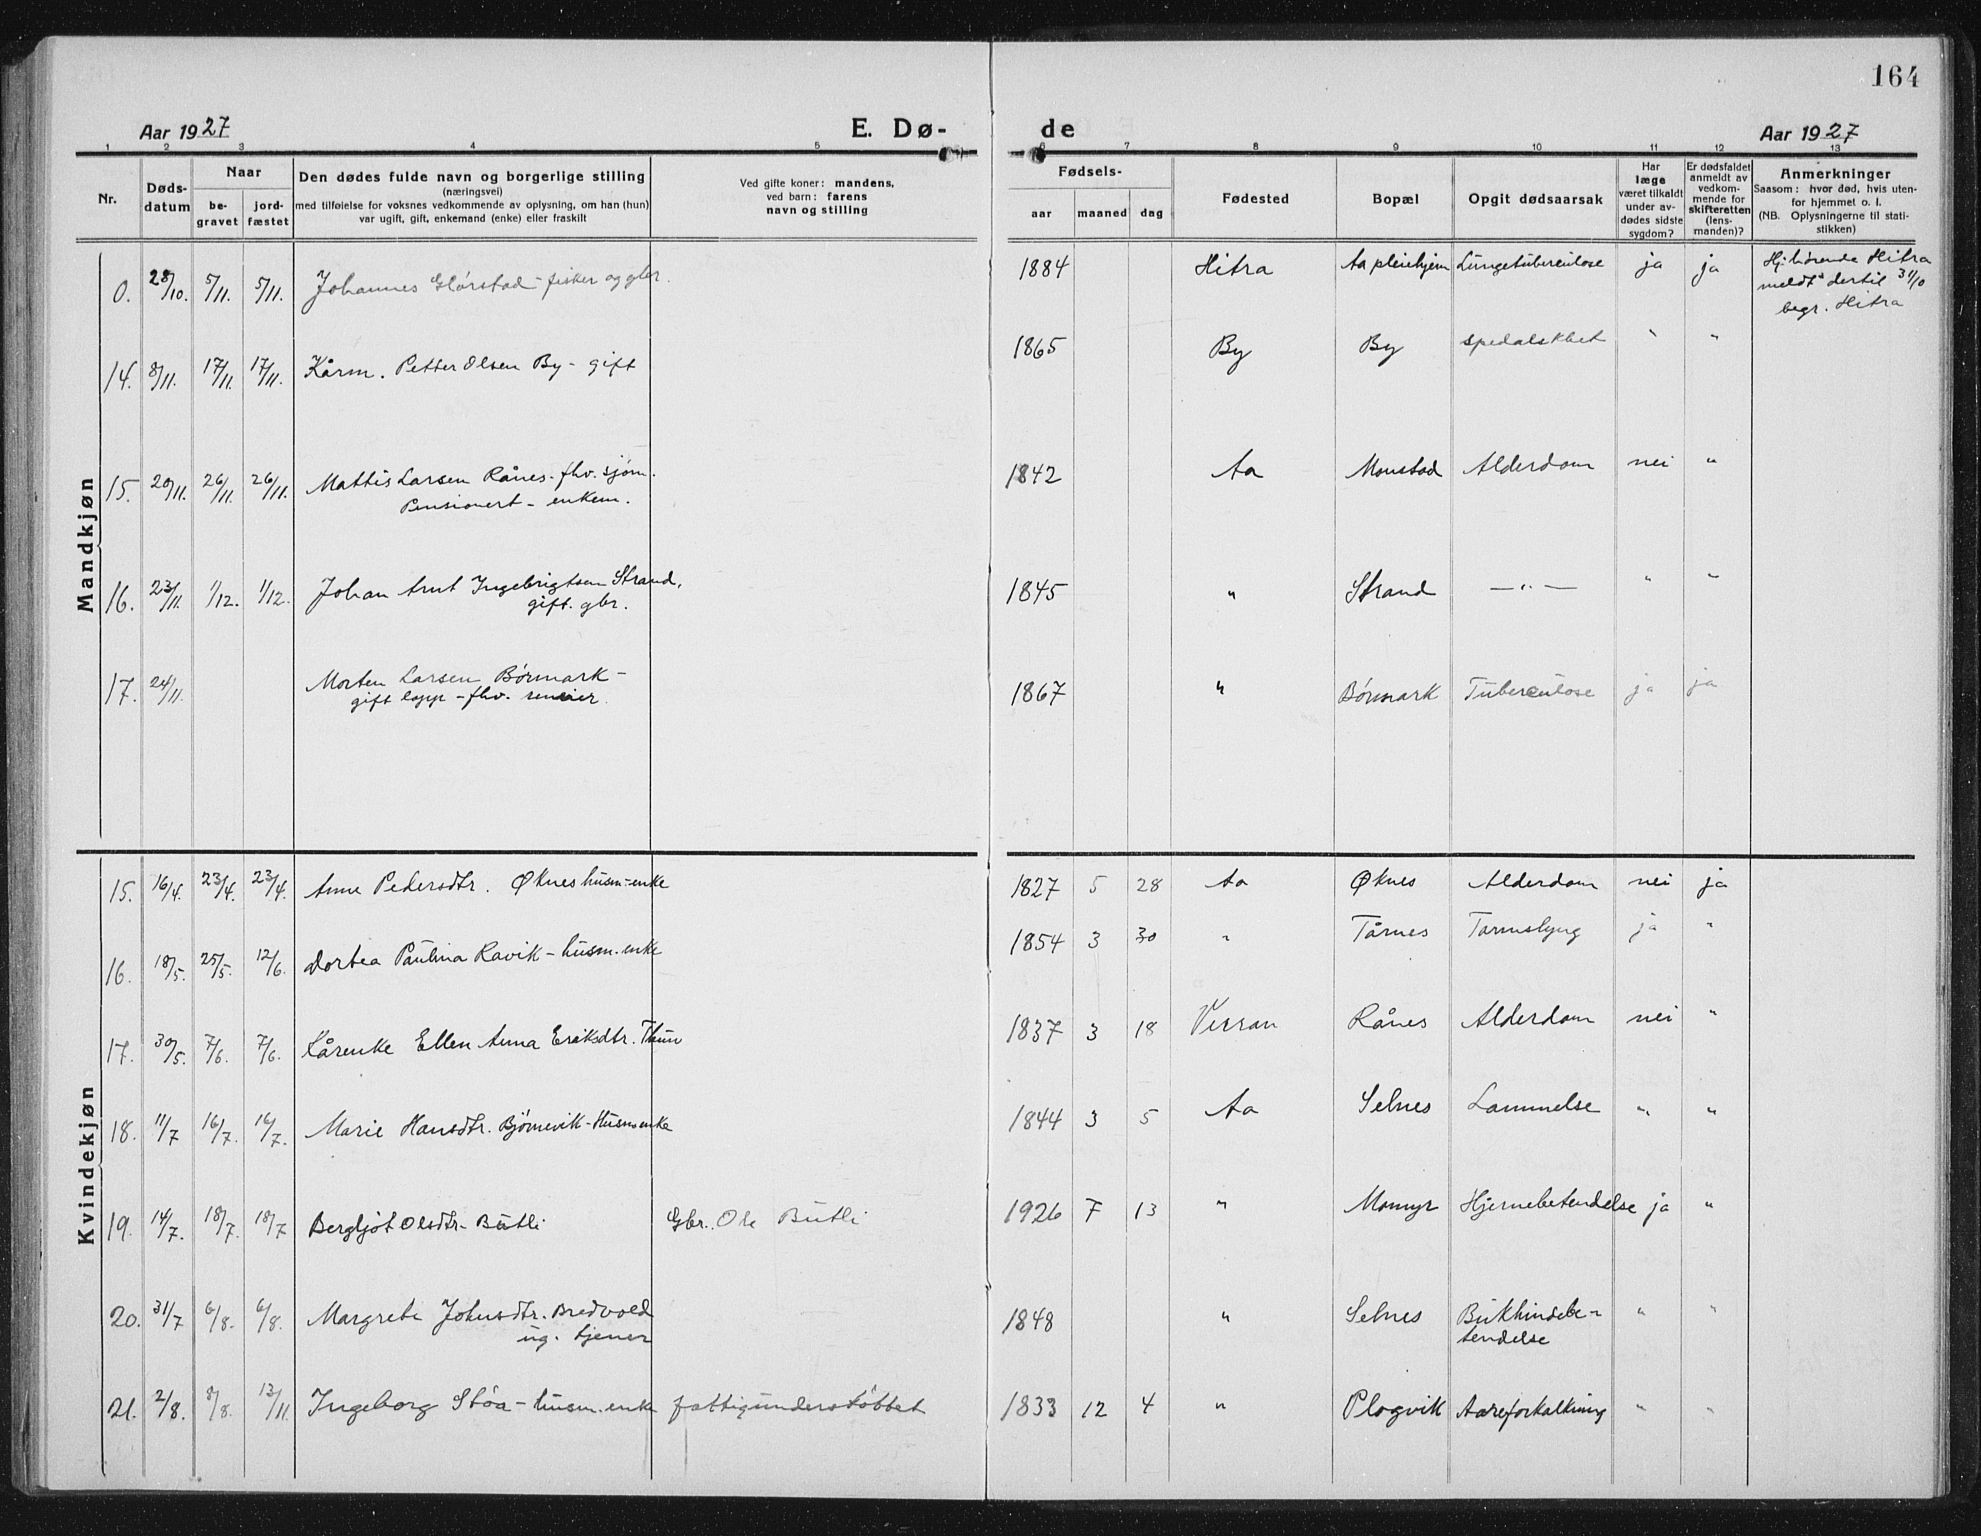 164
Aar 1927 E. Dø- de Aar 1927
1 2 3 4 5 6 7 8 9 10 11 12 13
Nr.
Døds-
datum
Naar
be-
gravet
jord-
fæstet
Den dødes fulde navn og borgerlige stilling
(næringsvei)
med tilføielse for voksnes vedkommende av oplysning, om han (hun)
var ugift, gift, enkemand (enke) eller fraskilt
Ved gifte koner: mandens,
ved barn: farens
navn og stilling
Fødsels-
aar maaned dag
Fødested
Bopæl
Opgit dødsaarsak
Har
læge
været tilkaldt
under av-
dødes sidste
sygdom?
Er dødsfaldet
anmeldt av
vedkom-
mende for
skifteretten
(lens-
manden)?
Anmerkninger
Saasom: hvor død, hvis uten-
for hjemmet o. l.
(NB. Oplysningerne til stati-
stikken)
Mandkjøn
0. 28/10. 5/11. 5/11. Johannes Glørstad - fisker og gbr. 1884 Hitra Aa pleiehjem Lungetuberculose ja ja Hj.hörende Hitra
meldt dertil 31/10
begr. Hitra
14. 8/11. 17/11. 17/11. Kårm. Petter Olsen By - gift 1865 By By Spedalskhet " "
15. 20/11. 26/11. 26/11. Mattis Larsen Rånes. fhv. sjøm. 1842 Aa Monstad Alderdom nei "
Pensionert - enkem.
16. 23/11. 1/12. 1/12. Johan Arnt Ingebrigtsen Strand. 1845 " Strand — " — " "
gift. gbr.
17. 24/11. Morten Larsen Børmark - 1867 " Børmark Tuberculose ja ja
gift lapp - fhv. reneier.
Kvindekjøn
15. 16/4. 23/4. 23/4. Anne Pedersdtr. Øknes husm-enke 1827 5 28 Aa Øknes Alderdom nei ja
16. 18/5. 25/5. 12/6. Dortea Paulina Ravik - husm.enke 1854 3 30 " Tårnes Tarmslyng ja "
17. 30/5. 7/6. 7/6. Kårenke Ellen Anna Eriksdtr. Thun 1837 3 18 Verran Rånes Alderdom nei "
18. 11/7 16/7. 16/7. Marie Hansdtr. Bjørnevik - Husmenke 1844 3 5 Aa Selnes Lammelse " "
19. 14/7. 18/7. 18/7 Bergljot Olsdtr. Butli Gbr. Ole Butli 1926 7 13 " Momyr Hjernebetendelse ja "
20. 31/7 6/8. 6/8. Margrete Johnsdtr. Bredvold 1848 " Selnes Bukhindebe- " "
ug. tjener tendelse
21. 2/8. 8/8. 13/11. Ingeborg Støa - husm.enke fattigunderstøttet 1833 12 4 " Plogvik Aareforkalkning " "